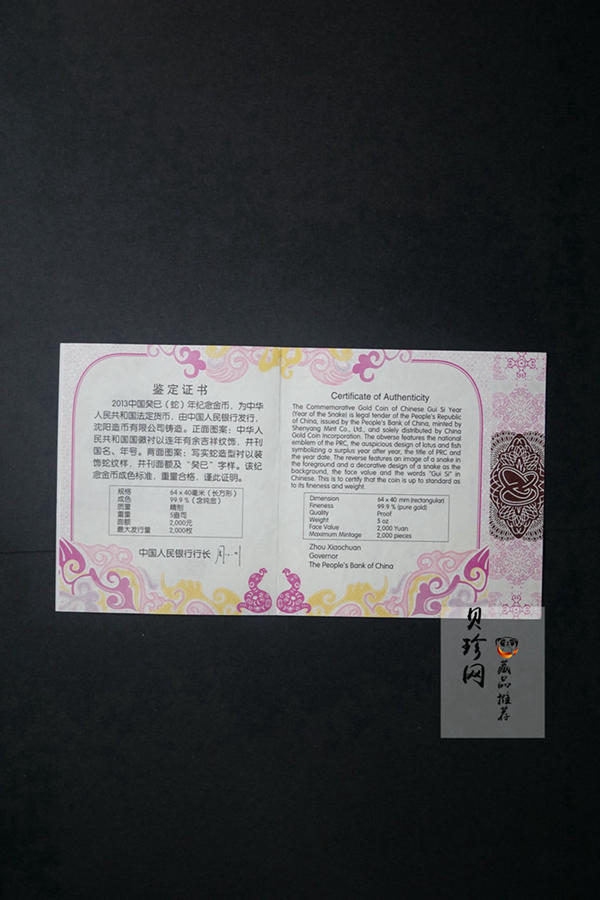 鉴定证书
2013中国癸巳（蛇）年纪念金币，为中华
人民共和国法定货币，由中国人民银行发行，
沈阳造币有限公司铸造。正面图案：中华人
民共和国国徽衬以连年有余吉祥纹饰，并刊
国名、年号。背面图案：写实蛇造型衬以装
饰蛇纹样，并刊面额及“癸巳”字样。该纪
念金币成色标准，重量合格，谨此证明。
规格 64×40毫米（长方形）
成色 99.9％（含纯金）
质量 精制
重量 5盎司
面额 2,000元
最大发行量 2,000枚
中国人民银行行长
Certificate of Authenticity
The Commemorative Gold Coin of Chinese Gui Si Year
(Year of the Snake) is legal tender of the People's Republic
of China, issued by the People's Bank of China, minted by
Shenyang Mint Co., Ltd., and solely distributed by China
Gold Coin Incorporation. The obverse features the national
emblem of the PRC, the auspicious design of lotus and fish
symbolizing a surplus year after year, the title of PRC and
the year date. The reverse features an image of a snake in
the foreground and a decorative design of a snake as the
background, the face value and the words "Gui Si" in
Chinese. This is to certify that the coin is up to standard as
to its fineness and weight.
Dimension 64×40 mm (rectangular)
Fineness 99.9 % (pure gold)
Quality Proof
Weight 5 oz
Face Value 2,000 Yuan
Maximum Mintage 2,000 pieces
Zhou Xiaochuan
Governor
The People's Bank of China
贝珍网
藏品推荐